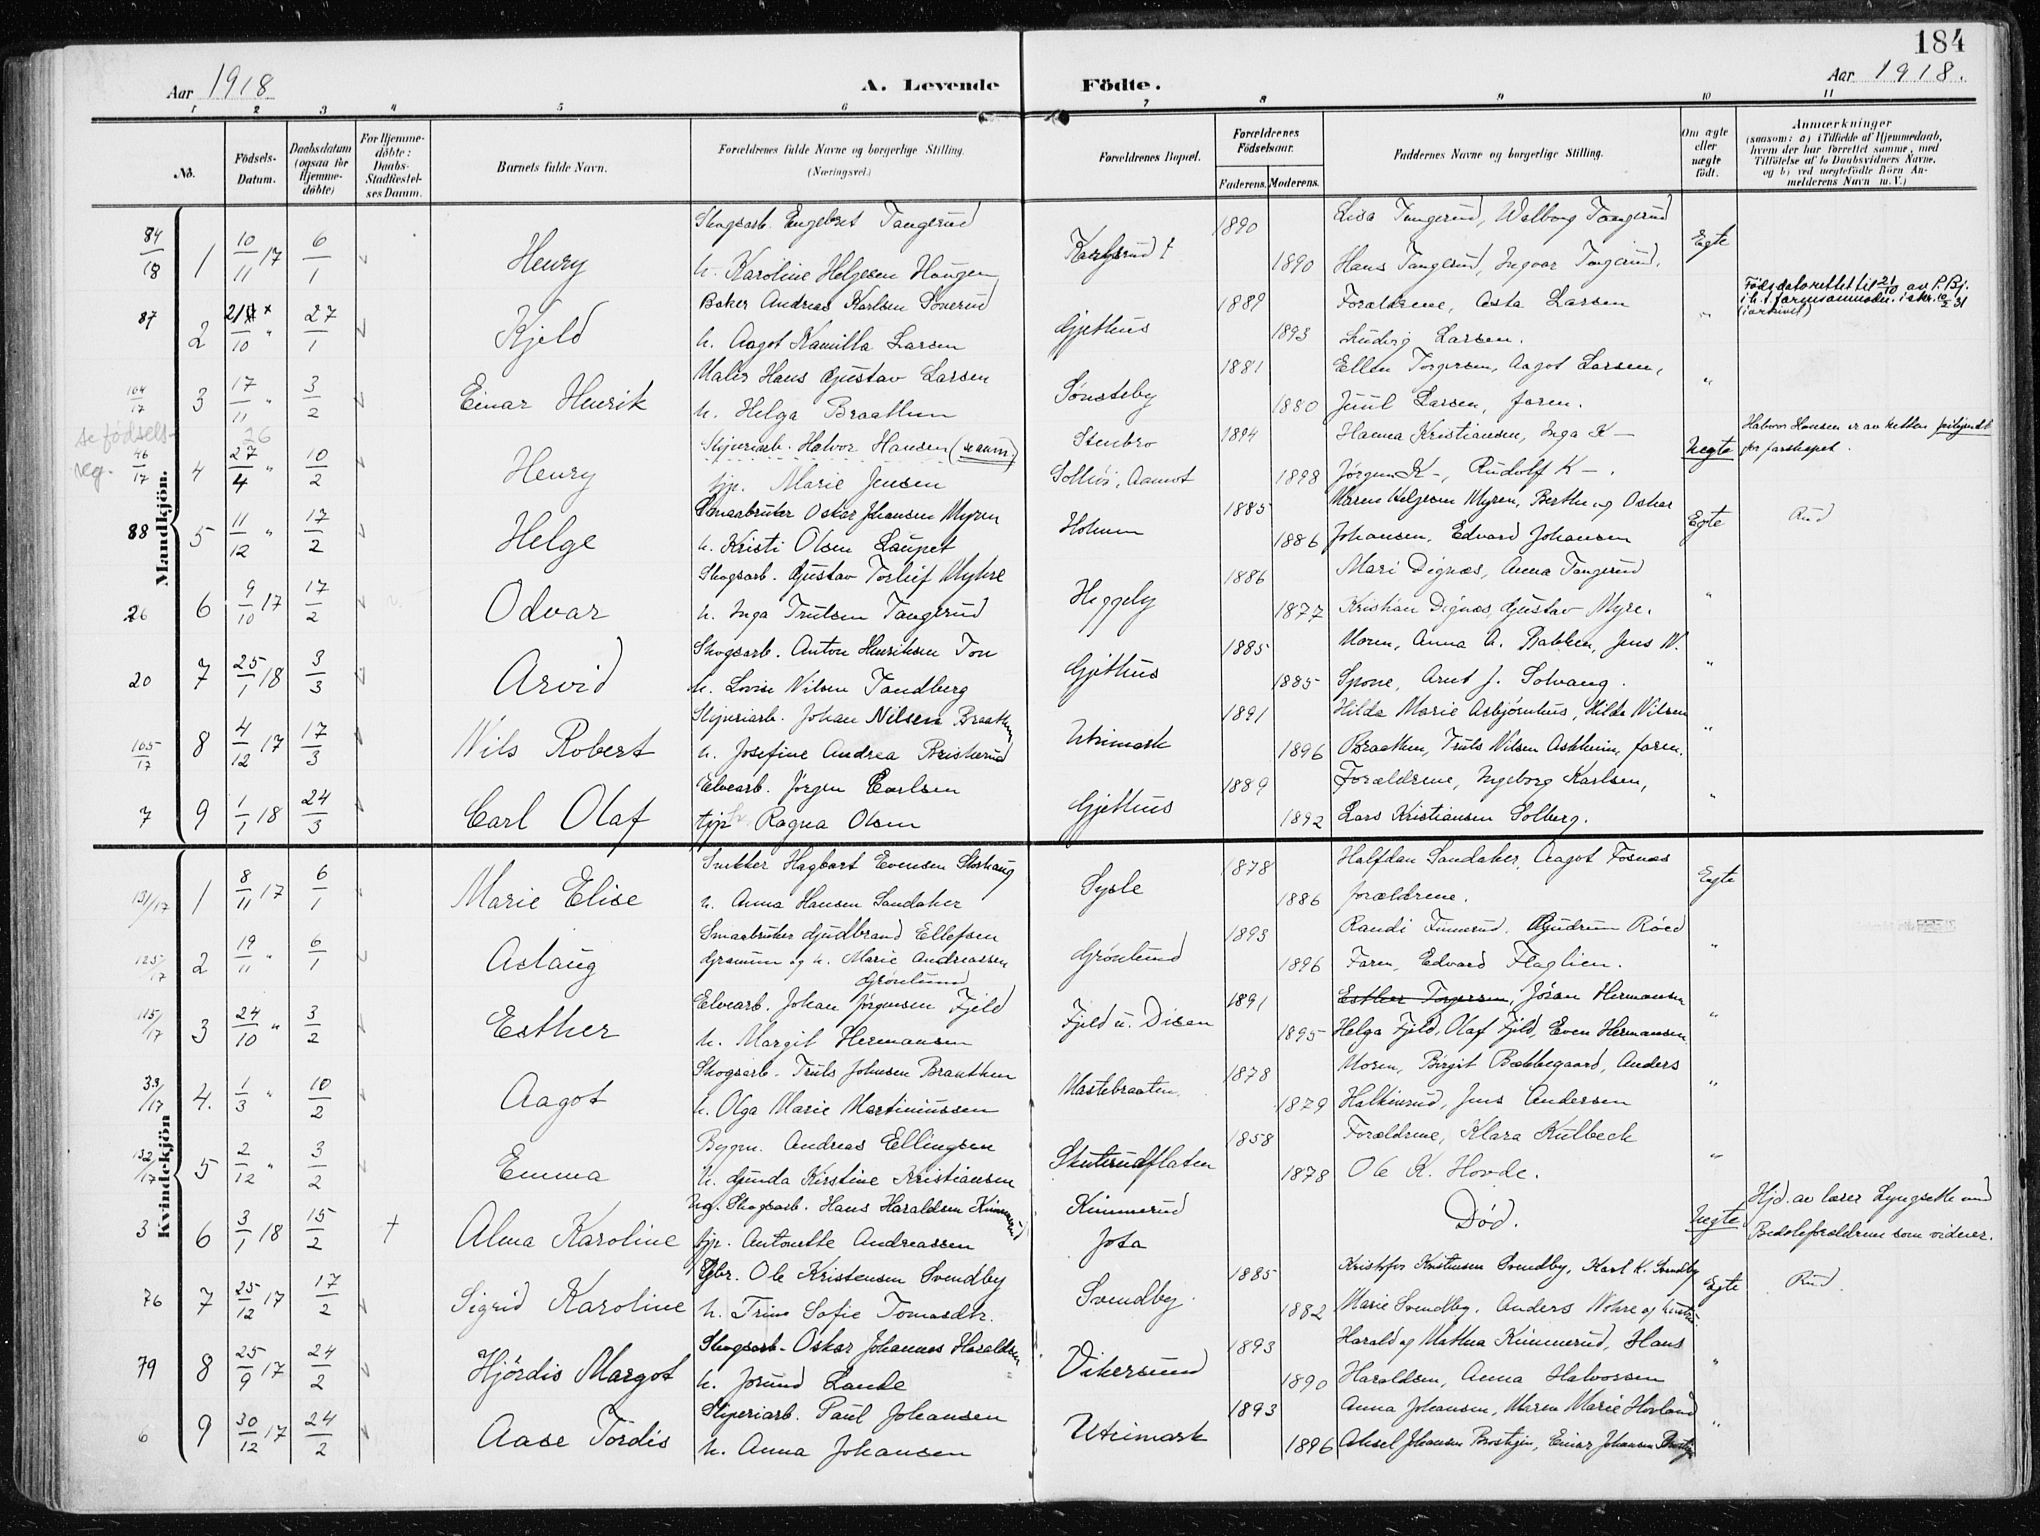 184
Aar 1918
A. Levende Födte.
Aar 1918.
1 2 3 4 5 6 7 8 9 10 11
No.
Födsels-Datum.
Daabsdatum (ogsaa for Hjemmedöbte)
For Hjemmedöbte: Daabs-Stadfæstelses Datum.
Barnets fulde Navn.
Forældrenes fulde Navne og borgerlige Stilling. (Næringsvei.)
Forældrenes Bopæl.
Forældrenes Födselsaar.
Faderens. Moderens.
Faddernes Navne og borgerlige Stilling.
Om ægte eller uægte födt.
Anmærkninger
(saasom: a) i Tilfælde af Hjemmedaab, hvem der har forrettet samme, med Tilföielse af to Daabsvidners Navne, og b) ved uægtefödte Börn Anmelderens Navn m. V.)
Mandkjön.
84/18 1 10/11 17 6/1 Henry
Skogsarb. Engebret Tangerud
h. Karoline Helgesen Haugen
1890 1890
Lisa Tangerud, Walborg Tangerud
Hans Tangerud, Ingvar Tangerud.
Egte
87 2 21/10 " 27/1 Kjeld
Baker Andreas Karlsen Sønerud
h. Aagot Kamilla Larsen
Gjethus 1889 1893
Forældrene, Asta Larsen
Ludvig Larsen.
"
Fødsdato rettet til 21/10 av P. Bj.
(i arkivet)
104/17 3 17/11 " 3/2 Einar Henrik
Maler Hans Gustav Larsen
h. Helga Braathen
Sønsteby 1881 1880
Ellen Torgersen, Aagot Larsen,
Juul Larsen, faren.
"
se fødsels-reg.
46/17 4 26 27/4 10/2 Henry
Sliperiarb. Halvor Hansen (se anm.)
pp. Marie Jensen
Stenbro
Solliøs, Aamot
1894 1898
Hanna Kristiansen, Inga K—
Jørgen K—, Rudolf K—.
Uegte
Halvor Hansen er av retten frikjendt
for farskapet.
88 5 11/12 " 17/2 Helge
Smaabruker Oskar Johansen Myren
h. Kristi Olsen Laupet
Holmen 1885 1886
Maren Helgesen Myren, Berthe og Oskar
Johansen, Edvard Johansen
Egte
Rud
26 6 9/10 17 17/2 Odvar
Skogsarb. Gustav Torleif Myhre
h. Inga Trulsen Tangerud
Heggely 1886 1877
Mari Dignæs, Anna Tangerud
Kristian Dignæs, Gustav Myre.
"
20 7 25/1 18 3/3 Arvid
Skogsarb. Anton Henriksen Ton
h. Lovise Nilsen Tandberg
Gjethus 1885 1885
Moren, Anna A. Bakken, Jens W.
Spone, Arnt J. Solvang.
"
105/17 8 4/12 17 17/3 Nils Robert
Sliperiarb. Johan Nilsen Braathen
h. Josefine Andrea Bristerud
Utrimark 1891 1896
Hilda Marie Asbjørnhus, Hilda Nilsen
Braathen, Truls Nilsen Askheim, faren.
"
7 9 1/1 18 24/3 Carl Olaf
Elvearb. Jörgen Carlsen
Ragna Olsen
Gjethus 1889 1892
Forældrene, Ingeborg Karlsen,
Lars Kristiansen Solberg.
"
Kvindekjön
131/17 1 8/11 17 6/1 Marie Elise
Snekker Hagbart Evensen Skohaug
h. Anna Hansen Sandaker
Sysle 1878 1886
Halfdan Sandaker, Aagot Fosnæs
forældrene.
Egte
125/17 2 19/11 " 6/1 Aslaug
Smaabruker Gudbrand Ellefsen
Gramum og h. Marie Andreassen
Grønlund
Grønlund 1893 1896
Randi Finnerud. Gudrun Røed
Faren, Edvard Flaglien.
"
115/17 3 24/10 " 3/2 Esther
Elvearb. Johan Jørgensen Fjeld
h. Margit Hermansen
Fjeld u. Disen 1891 1895
Esther Torgersen, Jöran Hermansen
Helga Fjeld, Olaf Fjeld, Even Hermansen
"
39/17 4. 1/3 " 10/2 Aagot
Skogsarb. Truls Johnsen Braathen
h. Olga Marie Martiniussen
Mastebraaten. 1878 1879
Moren, Birgit Bækkegaard, Anders
Halkinrud, Jens Andersen
"
132/17 5 2/12 " 3/2 Emma
Bygm. Andreas Ellingsen
h. Gunda Kirstine Kristiansen
Skuterudflaten 1858 1878
Forældrene, Klara Kulbeck
Ole K. Hovde.
"
3 6 3/1 18 15/2 † Alma Karoline
Ug. Skogsarb. Hans Haraldsen Kimmerud
pp. Antonette Andreassen
Kimmerud
Jota
Død.
Uegte
Hjd. av lærer Lyngsette med
Bedsteforældrene som vidner.
76 7 25/12 17 17/2 Sigrid Karoline
Gbr. Ole Kristensen Svendby
h. Trine Sofie Tomasdtr.
Svendby. 1885 1882
Kristofer Kristensen Svendby, Karl K. Svendby
Marie Svendby, Anders Nohre og hustru
Egte
Rud.
79 8 25/9 17 24/2 Hjördis Margot
Skogsarb. Oskar Johannes Haraldsen
h. Jorund Lande
Vikersund 1893 1890
Harald og Mathea Kimmerud, Hans
Haraldsen, Anna Halvorsen
"
6 9 30/12 17 24/2 Aase Tordis
Sliperiarb. Paul Johansen
h. Anna Johansen
Utrimark 1893 1896
Anna Johansen, Maren Marie Hovland
Aksel Johansen Brostigen, Einar Johansen Brostigen
"